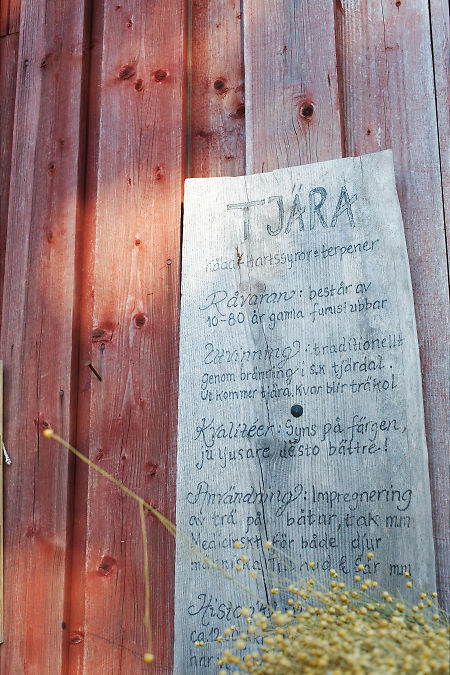 TJÄRA
hartssyror + terpener
Råvaran: består av
10-80 år gamla furustubbar
Utvinning: traditionellt
genom bränning i s.k tjärdal.
Ut kommer tjära. Kvar blir träkol
Kvalitéer: Syns på färgen,
ju ljusare desto bättre!
Användning: Impregnering
av trä på båtar, tak mm
Medicinskt för både djur
människa mm
Histo
ca
har